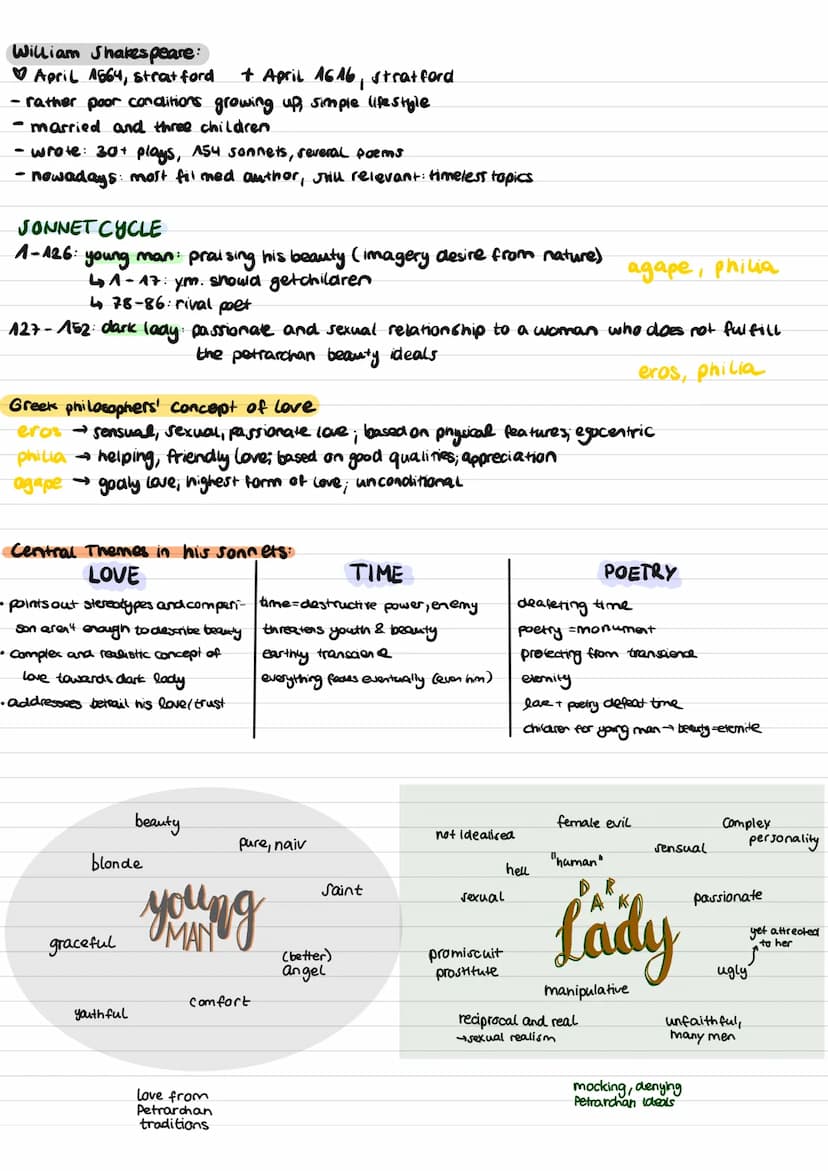 William Shakespeare:
♡ April 1564, stratford + April 1616, stratford
- rather poor conditions growing up, simple lifestyle
- married and three children
- wrote: 30+ plays, 154 sonnets, several poems
- nowadays: most filmed author, still relevant: timeless topics
SONNET CYCLE
1-126: young man: praising his beauty (imagery desire from nature)
agape, philia
↳ 1-17: y.m. should get children
↳ 78-86: rival poet
127-152: dark lady: passionate and sexual relationship to a woman who does not fulfill
the petrarchan beauty ideals
eros, philia
Greek philosophers' concept of love
eros → sensual, sexual, passionate love; based on physical features; egocentric
philia → helping, friendly love; based on good qualities; appreciation
agape → godly love; highest form of love; unconditional
Central Themes in his sonnets:
LOVE
• points out stereotypes and compari-
son aren't enough to describe beauty
• complex and realistic concept of
love towards dark lady
• addresses betrail his love/trust
TIME
time = destructive power, enemy
threatens youth & beauty
earthly transience
everything fades eventually (even him)
POETRY
deafeting time
poetry = monument
protecting from transience
eternity
love + poetry defeat time
children for young man → beauty = eternite
beauty
pure, naiv
blonde
saint
young
MAN
graceful
(better)
angel
comfort
youthful
love from
Petrarchan
traditions
female evil
complex
personality
not idealised
sensual
"human"
hell
DARK
Lady
sexual
passionate
yet attracted
to her
promiscuit
prostitute
ugly
manipulative
reciprocal and real
→ sexual realism
unfaithful,
many men
mocking, denying
Petrarchan ideals